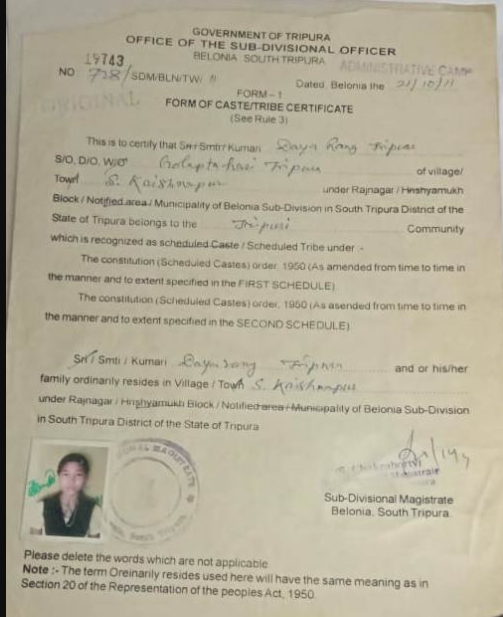 GOVERNMENT OF TRIPURA
OFFICE OF THE SUB-DIVISIONAL OFFICER
BELONIA SOUTH TRIPURA
ADMINISTRATIVE CAMP
19743
NO 728/SDM/BLN/TW/
Dated, Belonia the 21/10/11
ORIGINAL
FORM-1
FORM OF CASTE/TRIBE CERTIFICATE
(See Rule 3)
This is to certify that Sri/ Smti/ Kumari Tripura
S/O, D/O, W/O Tripura of village/
Town S. Kaishnapur under Rajnagar / Hrishyamukh
Block / Notified area / Municipality of Belonia Sub-Division in South Tripura District of the
State of Tripura belongs to the Tripuri Community
which is recognized as scheduled Caste / Scheduled Tribe under :-
The constitution (Scheduled Castes) order, 1950 (As amended from time to time in
the manner and to extent specified in the FIRST SCHEDULE)
The constitution (Scheduled Castes) order, 1950 (As asended from time to time in
the manner and to extent specified in the SECOND SCHEDULE)
Sri / Smti / Kumari Tripura and or his/her
family ordinarily resides in Village / Town S. Kaishnapur
under Rajnagar / Hrishyamukh Block / Notified area / Municipality of Belonia Sub-Division
in South Tripura District of the State of Tripura
Sub-Divisional Magistrate
Belonia, South Tripura.
Please delete the words which are not applicable
Note :- The term Oreinarily resides used here will have the same meaning as in
Section 20 of the Representation of the peoples Act, 1950.